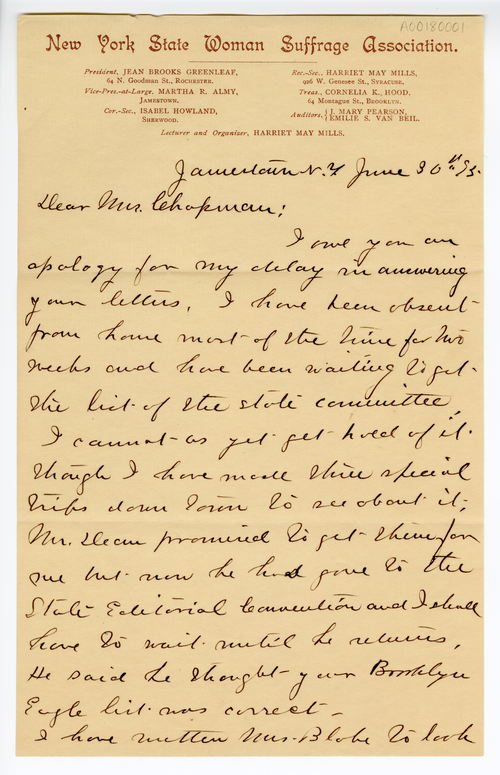 A00180001
New York State Woman Suffrage Association.
President, JEAN BROOKS GREENLEAF,
64 N. Goodman St., Rochester.
Vice-Pres.-at-Large, MARTHA R. ALMY,
Jamestown.
Cor.-Sec., ISABEL HOWLAND,
Sherwood.
Rec.-Sec., HARRIET MAY MILLS,
926 W. Genesee St., Syracuse.
Treas., CORNELIA K. HOOD,
64 Montague St., Brooklyn.
Auditors, { J. MARY PEARSON,
EMILIE S. VAN BEIL.
Lecturer and Organizer, HARRIET MAY MILLS.
Jamestown N.Y June 30th 95.
Dear Mrs. Chapman;
I owe you an
apology for my delay in answering
your letters. I have been absent
from home most of the time for two
weeks and have been waiting to get
the list of the state committee,
I cannot as yet get hold of it
though I have made three special
trips down town to see about it;
Mr. Dean promised to get them for
me but now he had gone to the
State Editorial Convention and I shall
have to wait until he returns,
He said he thought your Brooklyn
Eagle list was correct –
I have written Mrs. Blake to look